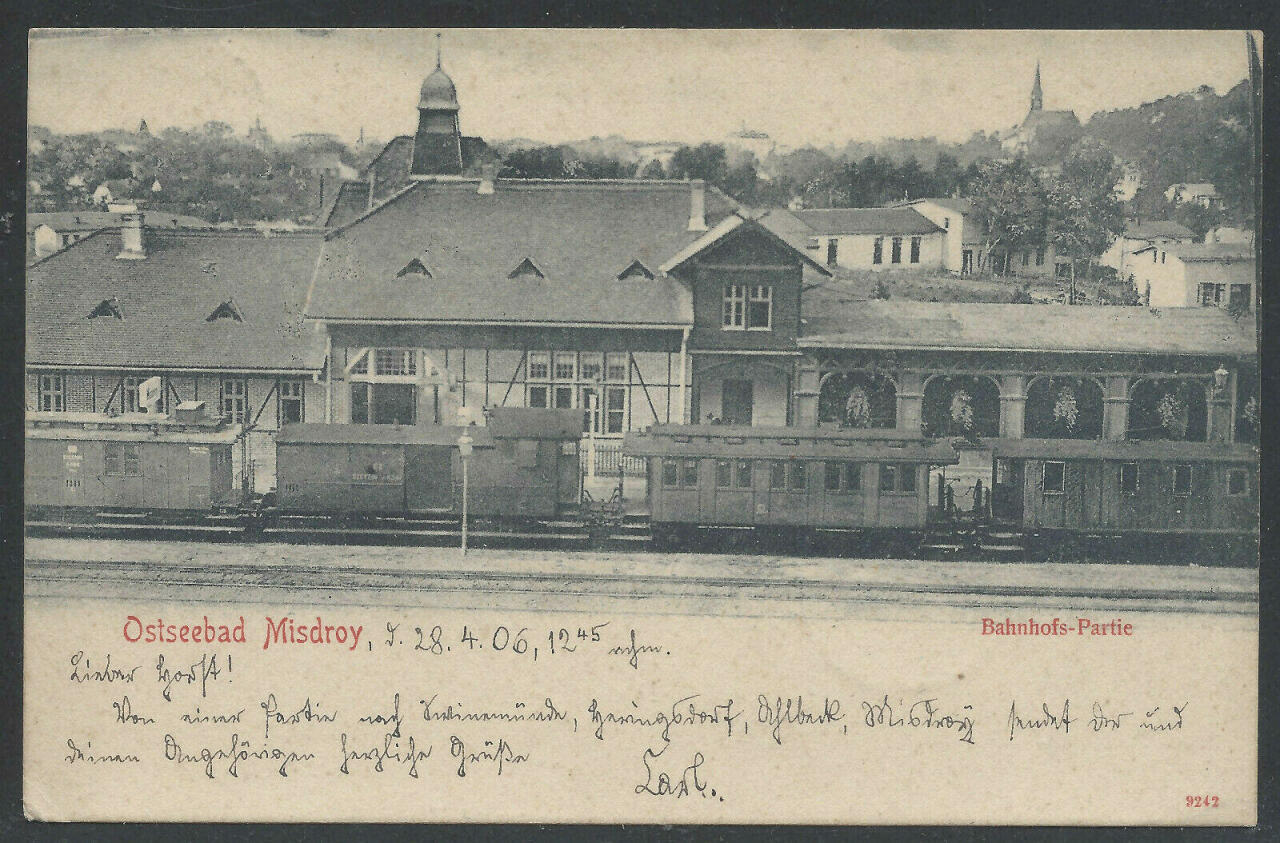 STETTIN
Ostseebad Misdroy, d. 28. 4. 06, 12⁴⁵ nchm.
Bahnhofs-Partie
Lieber Horst!
Von einer Partie nach Swinemünde, Heringsdorf, Ahlbeck, Misdroy sendet Dir und
deinen Angehörigen herzliche Grüße
Carl.
9242